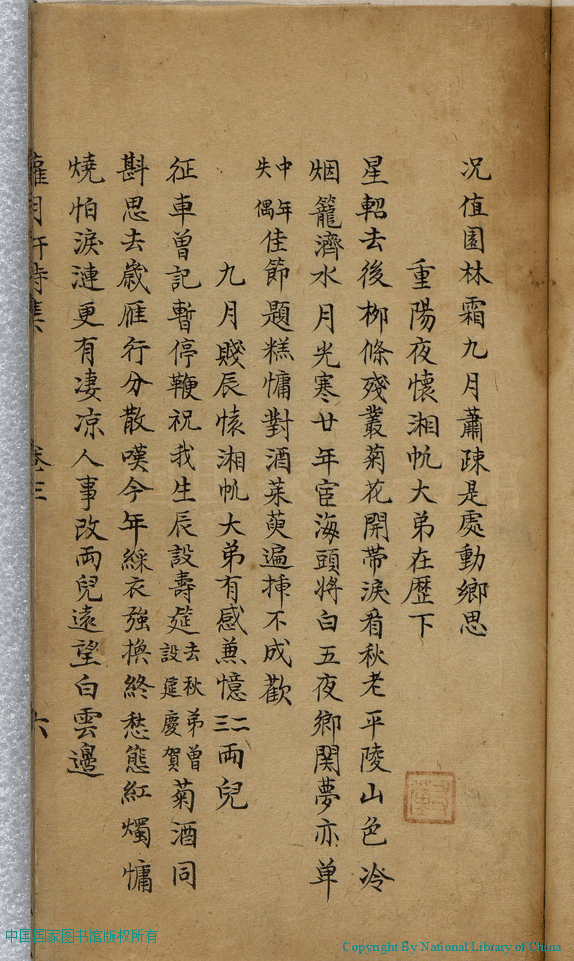 况值園林霜九月蕭疎是處動鄉思
重陽夜懷湘帆大弟在歷下
星軺去後柳條殘叢菊花開帶淚看秋老平陵山色冷
烟籠濟水月光寒廿年宦海頭將白五夜鄉関夢亦单
中年失偶佳節題糕慵對酒茱萸遍揷不成歡
九月賤辰懐湘帆大弟有感兼憶二三两兒
征車曾記暫停鞭祝我生辰設壽筵去秋弟曾設筵慶賀菊酒同
斟思去歲雁行分散嘆今年綵衣強換終愁態紅燭慵
燒怕淚漣更有凄凉人事改两兒遠望白雲邊
卷三
六
中国国家图书馆版权所有
Copyright By National Library of China